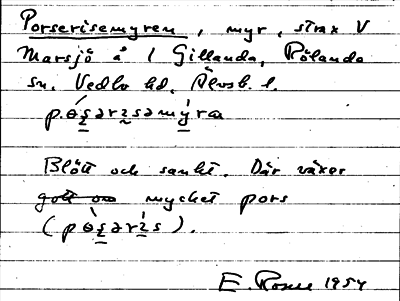 Porserisemyren, myr, strax V
Marsjö å i Gillanda, Rölanda
sn. Vedbo hd. Älvsb. l.
Blött och sankt. Där växer
gott om mychet pors
E. Rosell 1954